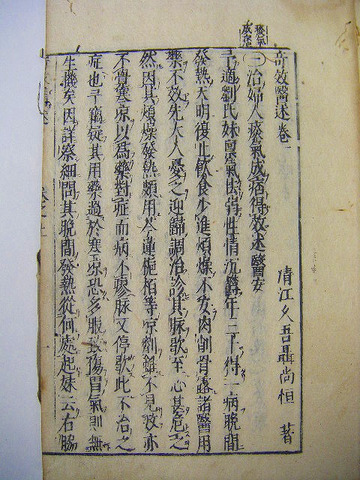 奇效醫述卷一
清江久吾聶尚恒 著
一治婦人痰氣成痞得效述 醫案
予適劉氏妹 性情沉 年二十得一病晚間
發熱天明復止飲食少進煩燥不安肉削骨露諸醫用
藥不效先大人憂之迎歸調治診其脉歇至心甚危之
然因其煩燥發熱頻用芩連梔栢等涼劑雖不見效亦
不覺寒涼以為藥對症而病不 脉又停歇此不治之
症也予竊疑其用藥過於寒涼恐多服 傷胃氣則無
生機矣因詳察細問其晚間發熱從何處起妹云右脇